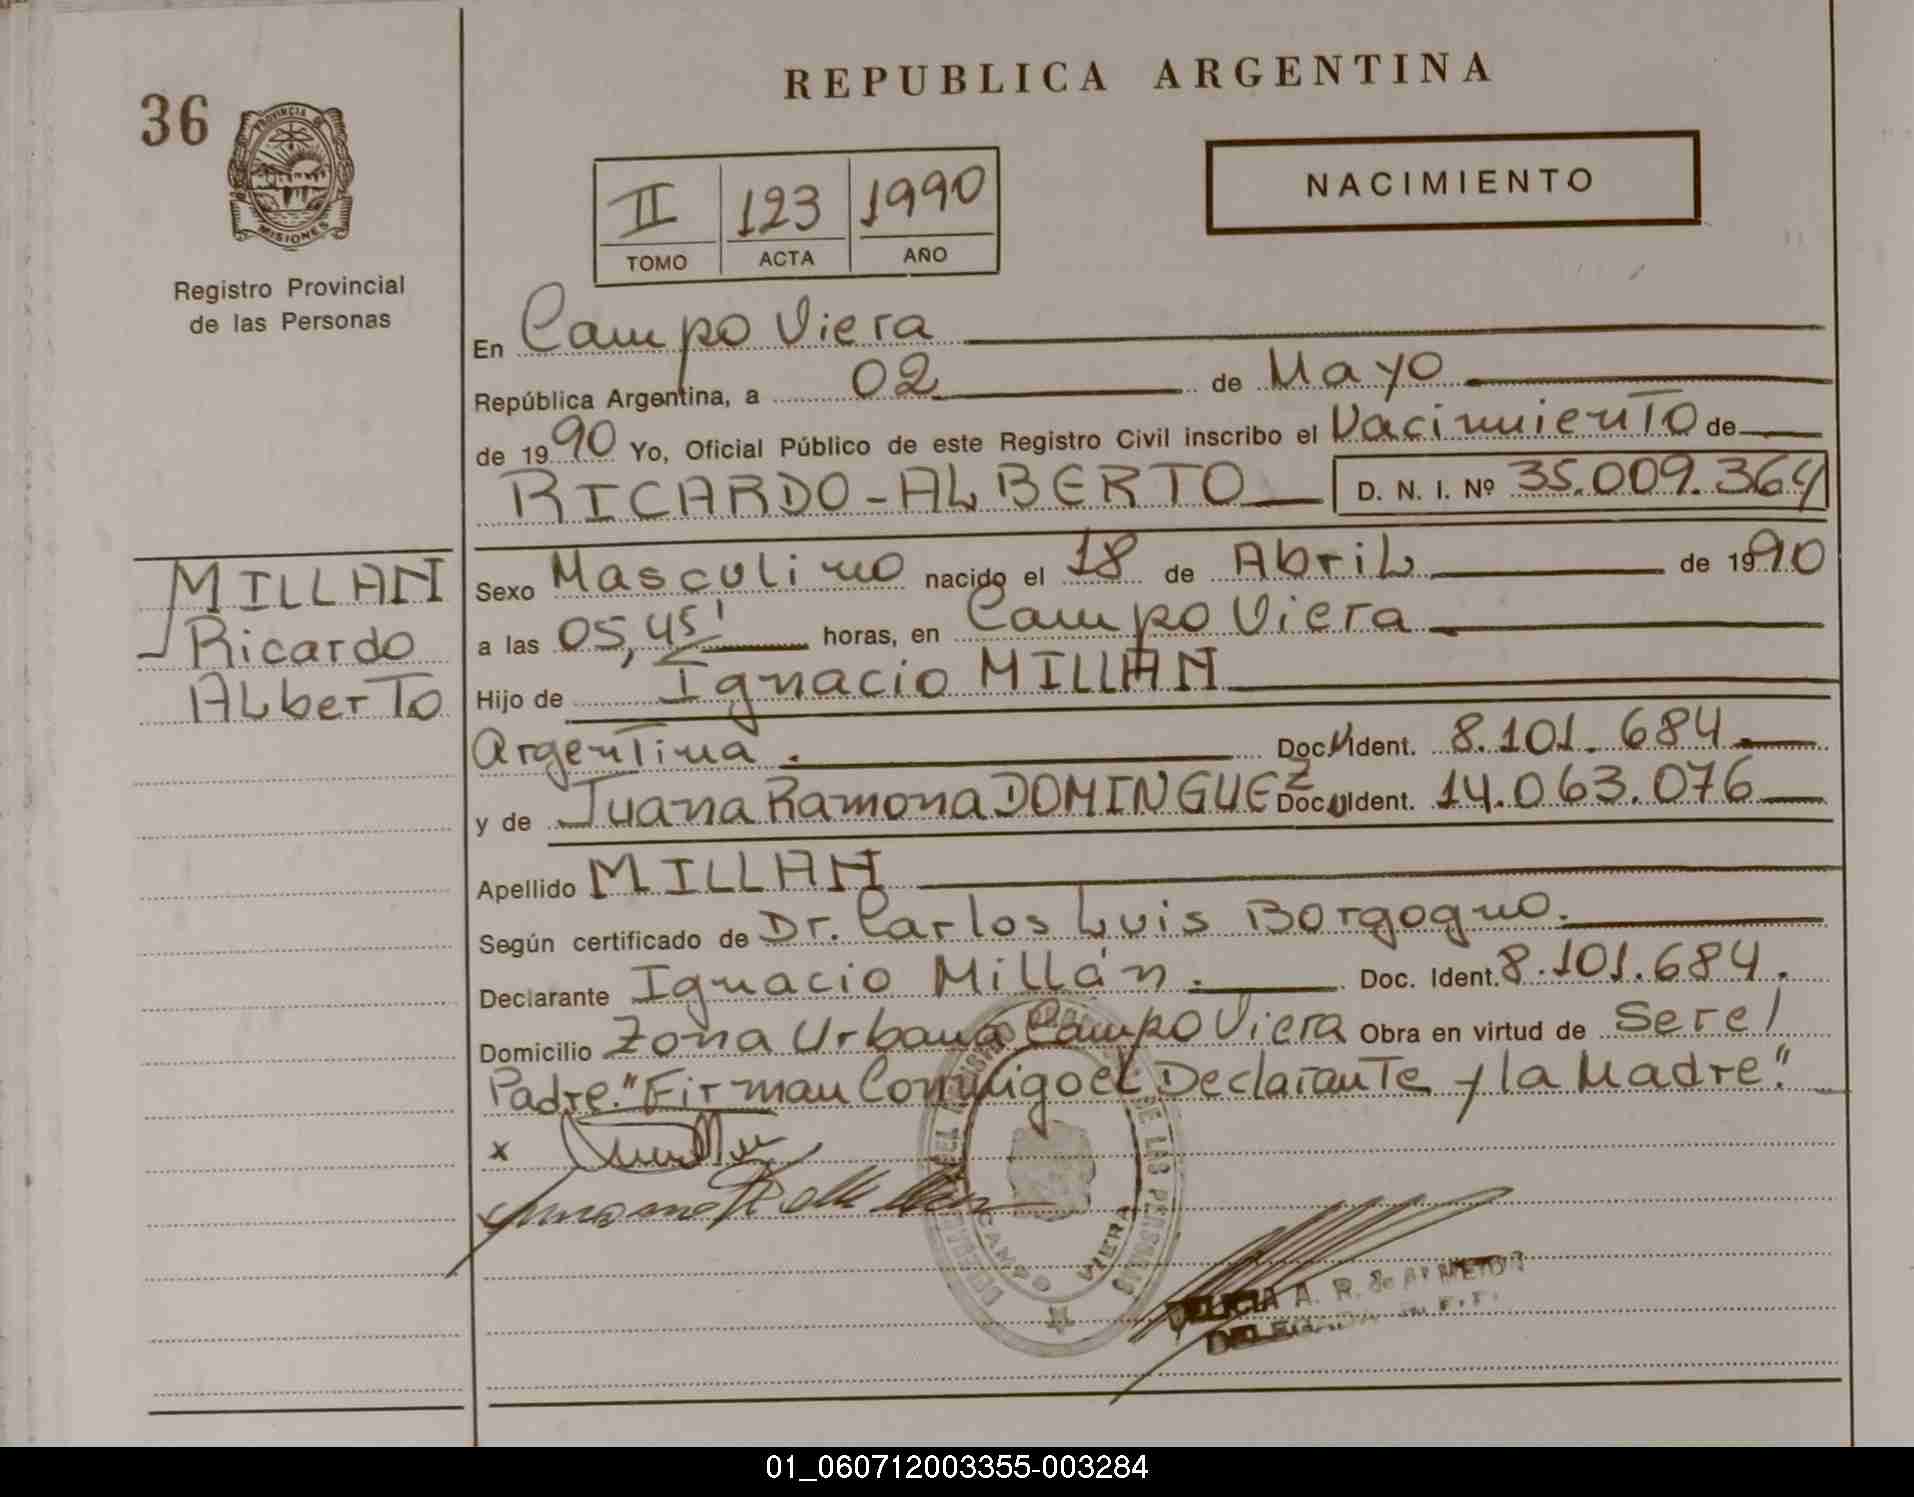 REPUBLICA ARGENTINA
36
PROVINCIA D
MISIONES
Registro Provincial
de las Personas
NACIMIENTO
II 123 1990
TOMO ACTA AÑO
En Campo Viera
República Argentina, a 02 de Mayo
de 1990 Yo, Oficial Público de este Registro Civil inscribo el Nacimiento de
RICARDO-ALBERTO D. N. I. Nº 35.009.364
MILLAN
Ricardo
Alberto
Sexo Masculino nacido el 18 de Abril de 1990
a las 05,45' horas, en Campo Viera
Hijo de Ignacio MILLAN
Argentina. Doc. Ident. 8.101.684.
y de Juana Ramona DOMINGUEZ Doc. Ident. 14.063.076
Apellido MILLAN
Según certificado de Dr. Carlos Luis Borgogno.
Declarante Ignacio Millán. Doc. Ident. 8.101.684.
Domicilio Zona Urbana Campo Viera Obra en virtud de Ser el
Padre. "Firman Conmigo el Declarante y la Madre".
x
DE LAS PERSONAS
CAMPO VIERA
A. R. de
01_060712003355-003284